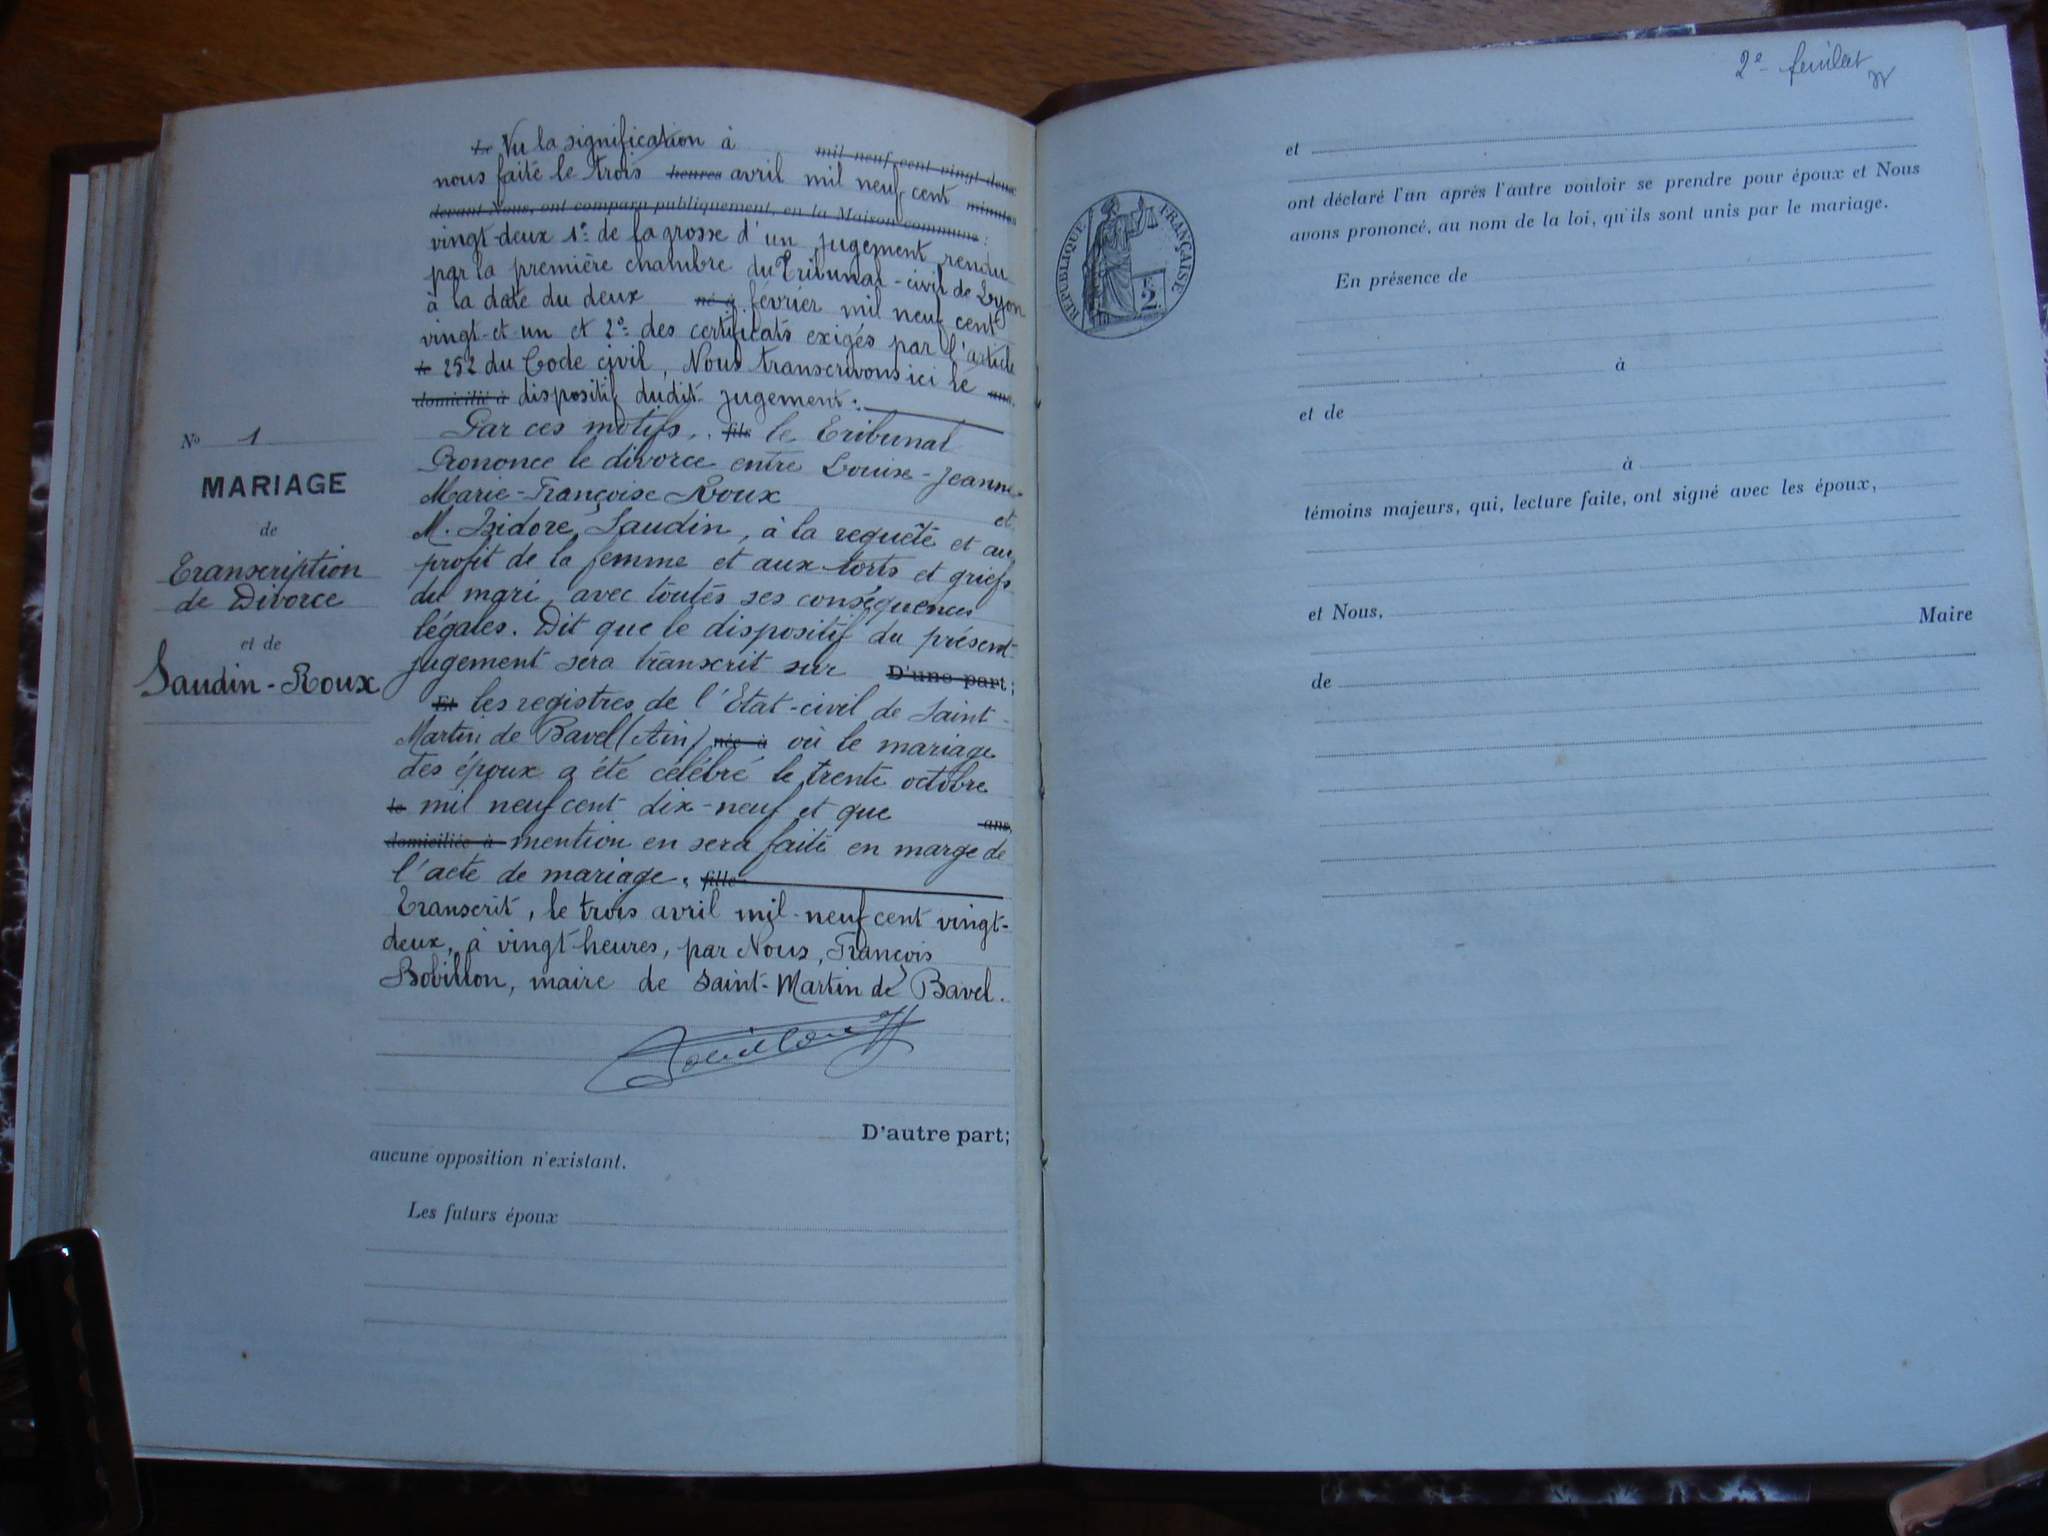 le Vu la signification à mil neuf cent vingt-deux
nous faite le trois heures avril mil neuf cent minutes
devant Nous, ont comparu publiquement, en la Maison commune :
vingt-deux 1º de la grosse d'un jugement rendu
par la première chambre du Tribunal-civil de Lyon
à la date du deux né à février mil neuf cent
vingt-et-un et 2º des certificats exigés par l'article
le 252 du Code civil, Nous transcrivons ici le ans,
domicilié à dispositif dudit jugement :
Par ces motifs, fils le Tribunal
Prononce le divorce entre Louise-Jeanne-
Marie-Françoise Roux et
M. Isidore Saudin, à la requête et au
profit de la femme et aux torts et griefs
du mari, avec toutes ses conséquences
légales. Dit que le dispositif du présent
jugement sera transcrit sur D'une part;
Et les registres de l'Etat-civil de Saint-
Martin de Bavel (Ain) née à où le mariage
des époux a été célébré le trente octobre
le mil neuf cent dix-neuf et que ans,
domiciliée à mention en sera faite en marge de
l'acte de mariage. fille
Transcrit, le trois avril mil-neuf cent vingt-
deux, à vingt heures, par Nous, François
Bobillon, maire de Saint-Martin de Bavel.
Bobillon
D'autre part;
aucune opposition n'existant.
Les futurs époux
Nº 1
MARIAGE
de
Transcription
de Divorce
et de
Saudin-Roux
2e feuillet
RÉPUBLIQUE FRANÇAISE
2
et
ont déclaré l'un après l'autre vouloir se prendre pour époux et Nous
avons prononcé, au nom de la loi, qu'ils sont unis par le mariage.
En présence de
à
et de
à
témoins majeurs, qui, lecture faite, ont signé avec les époux,
et Nous, Maire
de